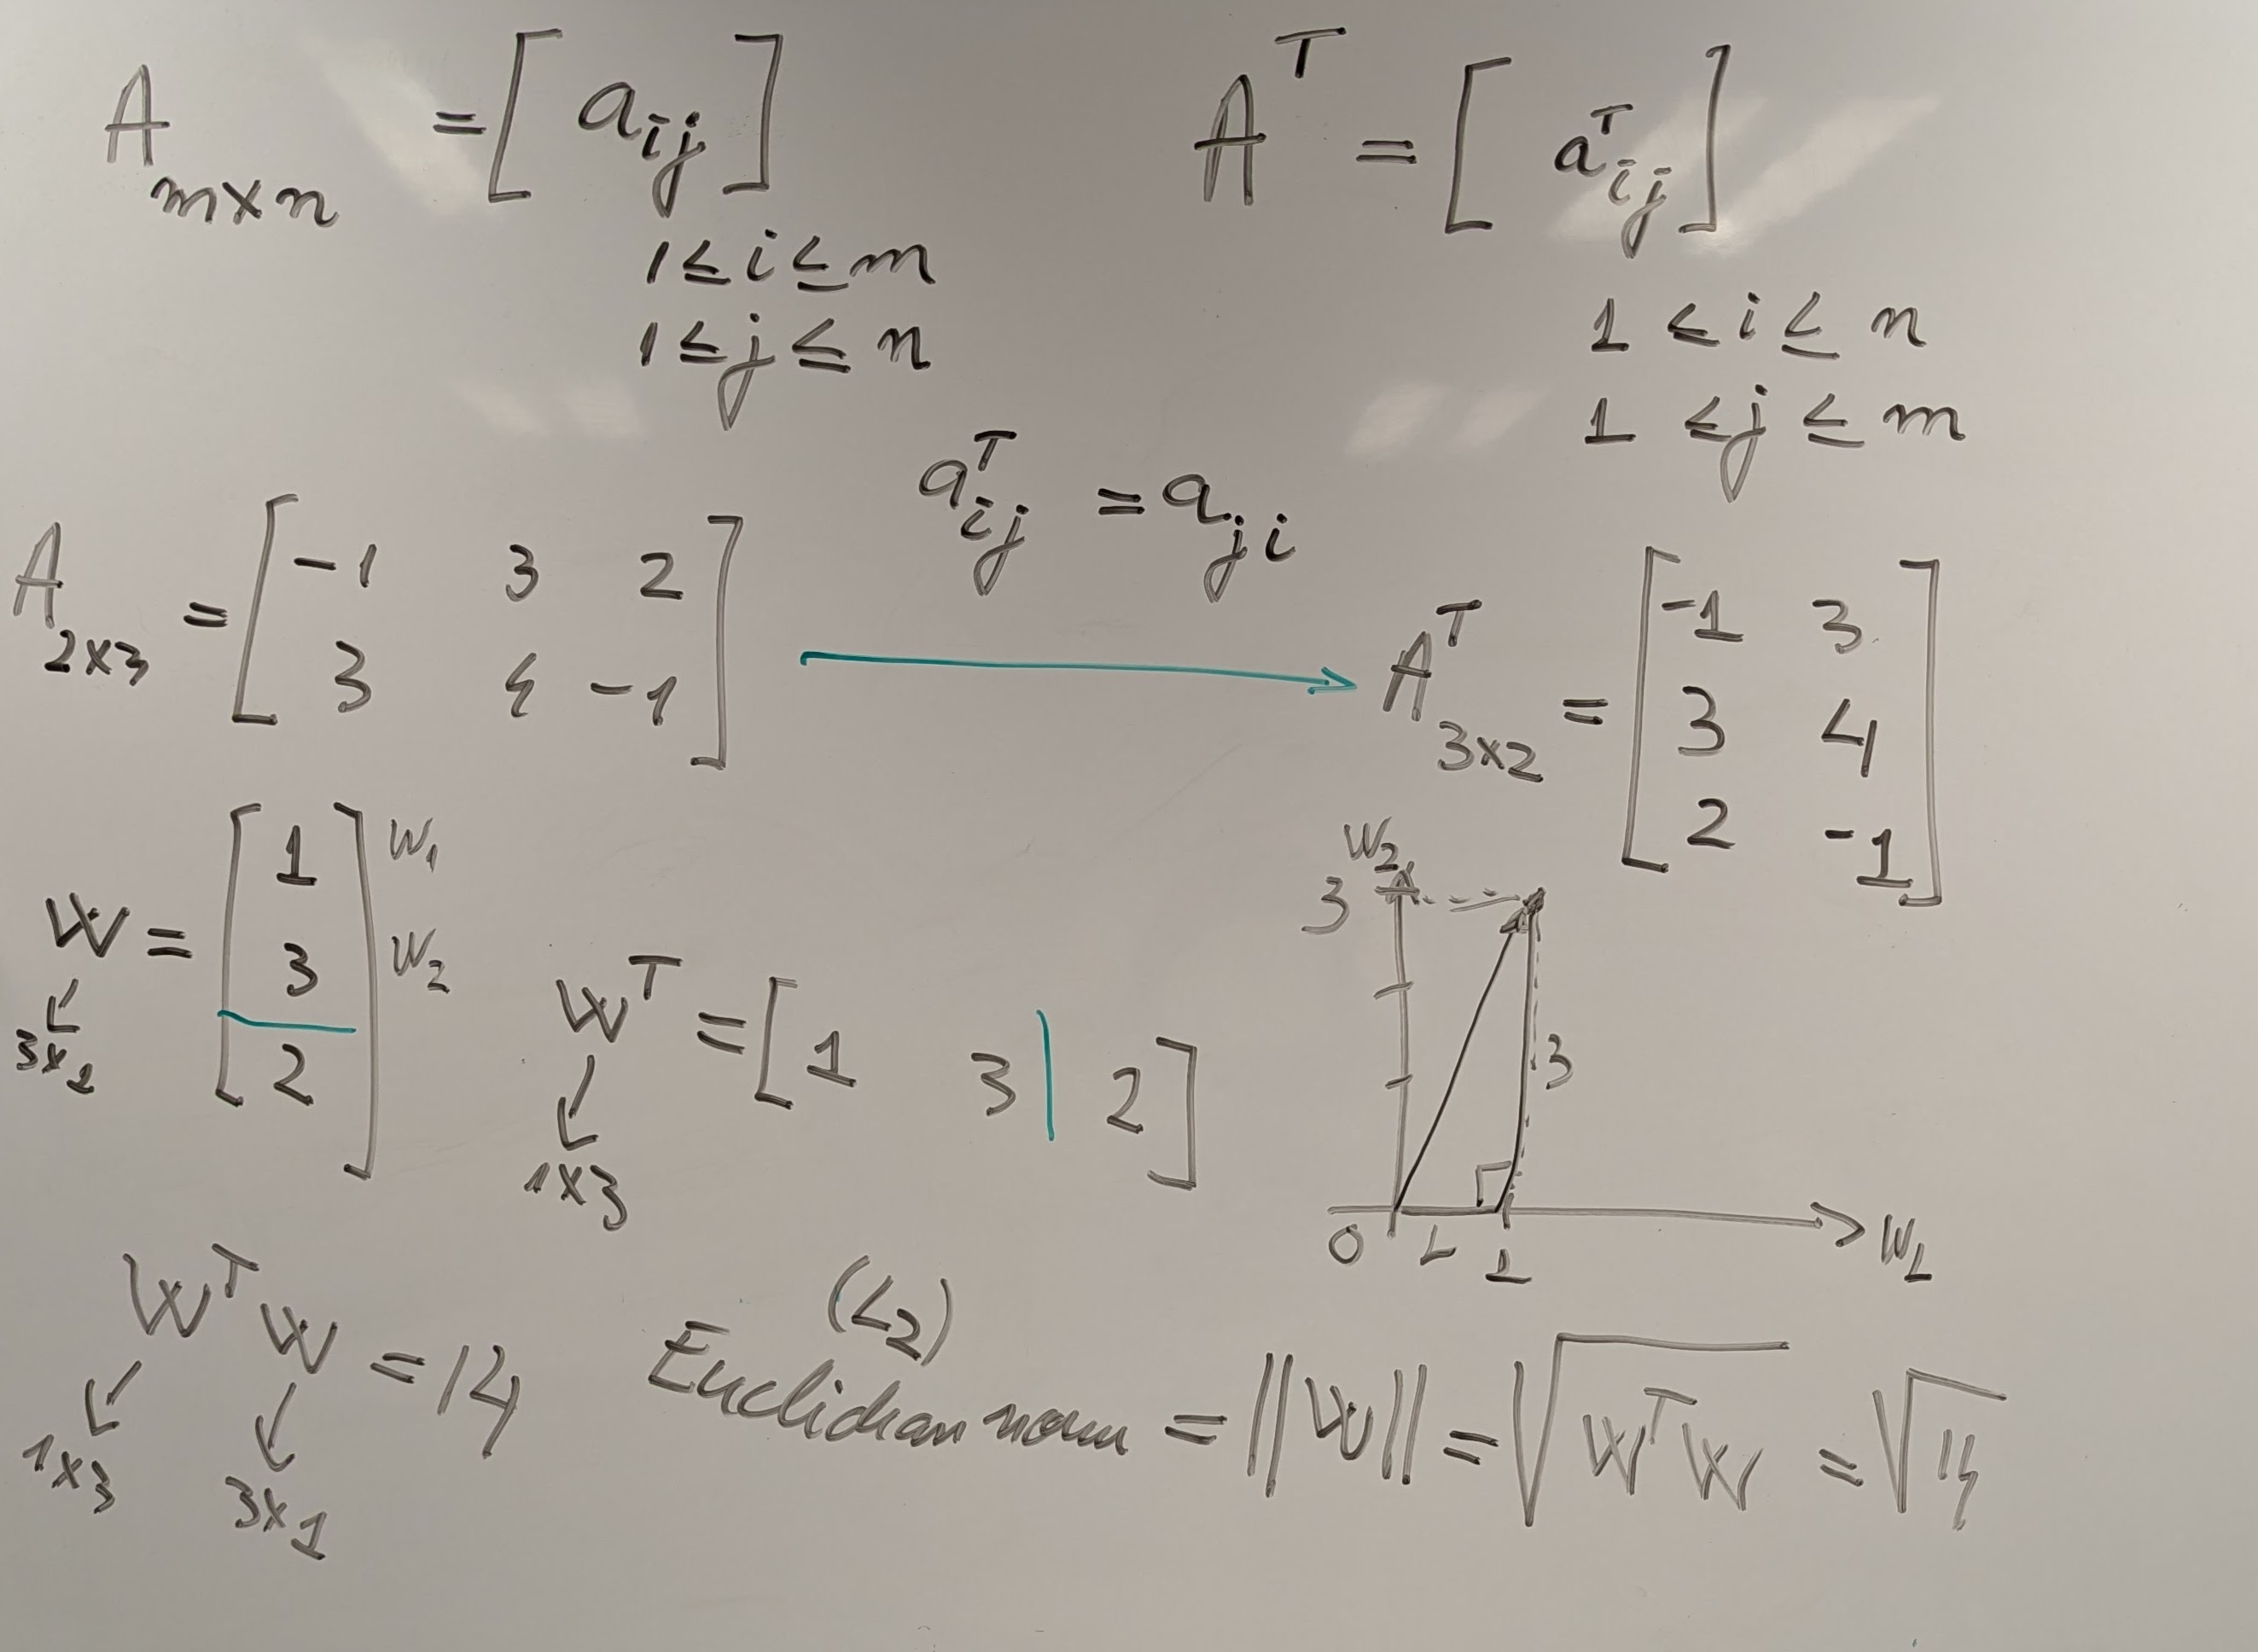 A_{m×n} = [ a_{ij} ]
1 ≤ i ≤ m
1 ≤ j ≤ n
A^T = [ a^T_{ij} ]
1 ≤ i ≤ n
1 ≤ j ≤ m
a^T_{ij} = a_{ji}
A_{2×3} = [ -1 3 2
3 4 -1 ]
A^T_{3×2} = [ -1 3
3 4
2 -1 ]
W = [ 1 W_1
3 W_2
2 ]
3×2
W^T = [ 1 3 | 2 ]
1×3
W_2
3
3
0 1 1 W_1
W^T W = 14
1×3 3×1
(L_2)
Euclidian norm = ||W|| = √(W^T W) = √14